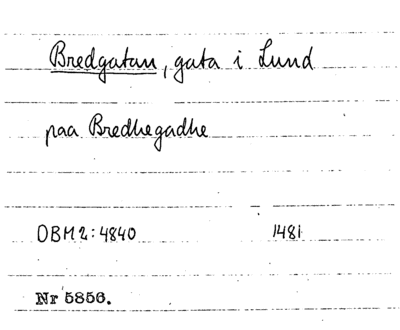 Bredgatan, gata i Lund
paa Bredhegadhe
DBM2:4840 1481
Nr 5856.